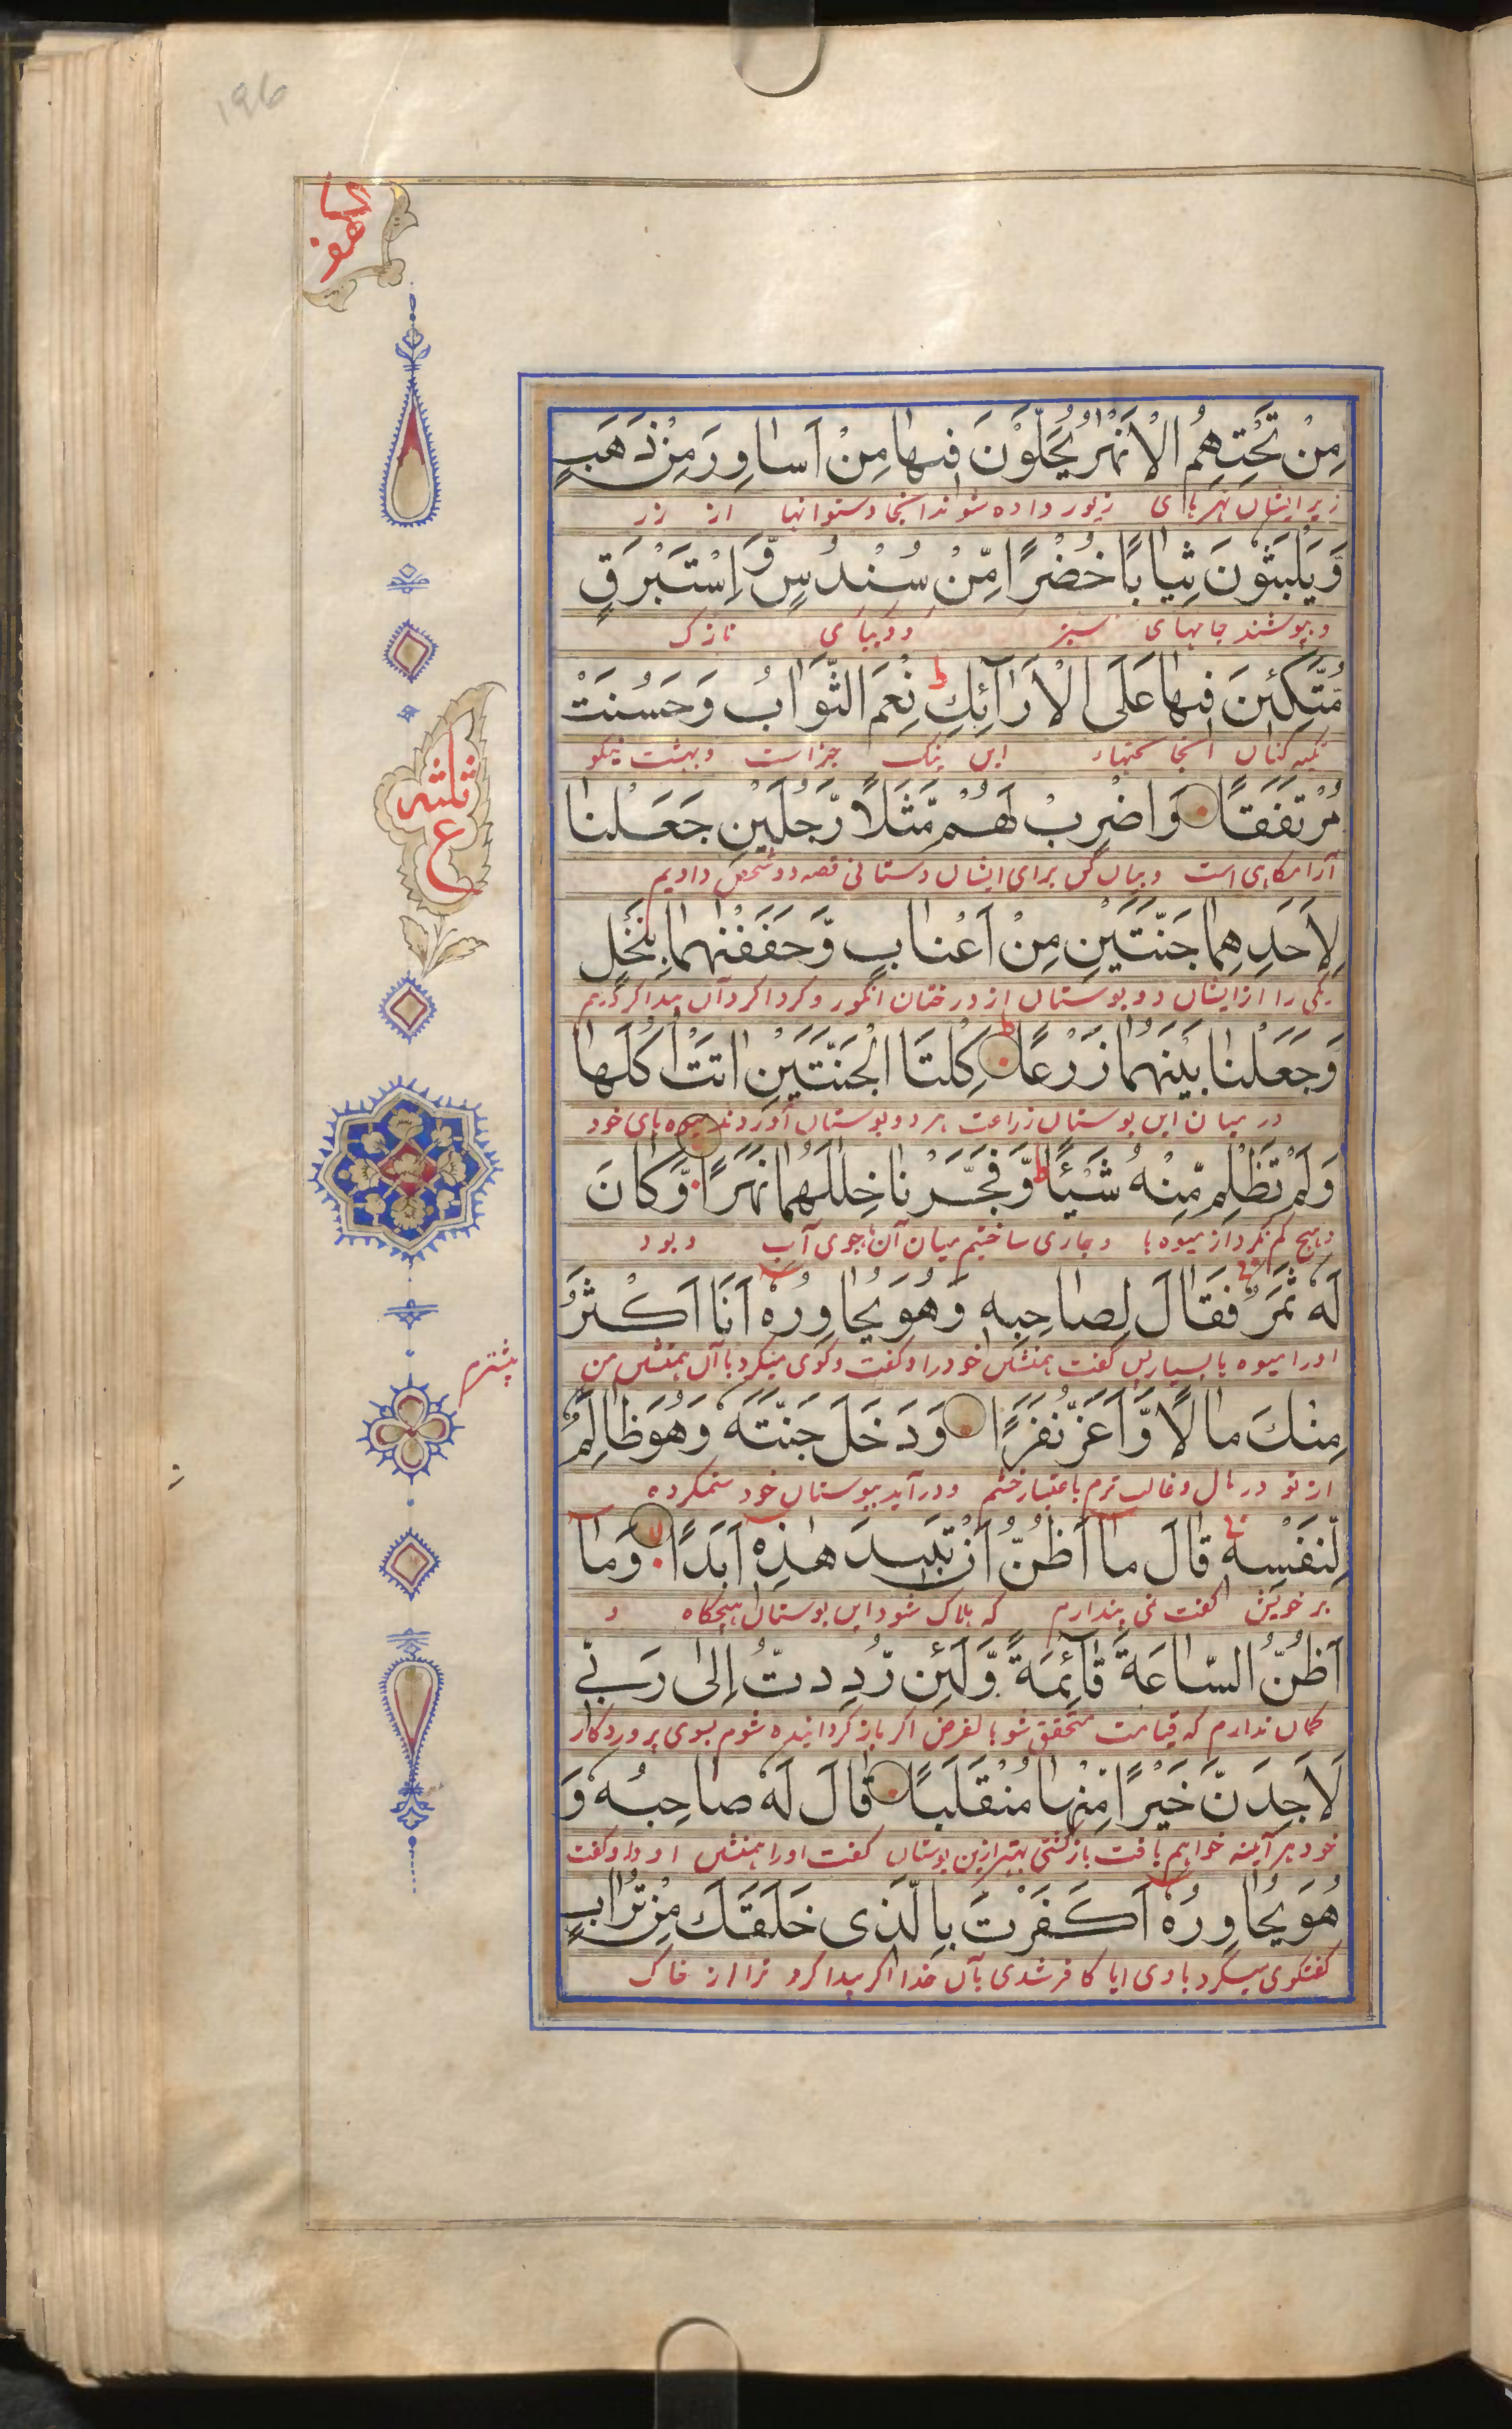 196
الكهف
مِنْ تَحْتِهِمُ الْاَنْهٰرُ يُحَلَّوْنَ فِيهَا مِنْ اَسَاوِرَ مِنْ ذَهَبٍ
زیر ایشان نهرهای زیور داده شوند آنجا دستوانها از زر
وَّيَلْبَسُوْنَ ثِيَابًا خُضْرًا مِّنْ سُنْدُسٍ وَّ اِسْتَبْرَقٍ
و بپوشند جامهای سبز و دیبای نازک
مُّتَّكِئِينَ فِيهَا عَلَى الْاَرَآئِكِ ط نِعْمَ الثَّوَابُ وَحَسُنَتْ
تکیه کنان آنجا این نیک جزاست و بهشت نیکو
مُرْتَفَقًا وَاضْرِبْ لَهُمْ مَّثَلًا رَّجُلَيْنِ جَعَلْنَا
آرامگاهی است و بیان کن برای ایشان دستانی قصه دو شخص دادیم
ثلثه
ع
لِاَحَدِهِمَا جَنَّتَيْنِ مِنْ اَعْنَابٍ وَّحَفَفْنٰهُمَا بِنَخْلٍ
یکی را از ایشان دو بوستان از درختان انگور و گرداگرد آن پیدا کردیم
وَّجَعَلْنَا بَيْنَهُمَا زَرْعًا ط كِلْتَا الْجَنَّتَيْنِ اٰتَتْ اُكُلَهَا
در میان این بوستان زراعت هر دو بوستان آوردند میوه های خود
وَلَمْ تَظْلِمْ مِّنْهُ شَيْئًا ط وَّفَجَّرْنَا خِلٰلَهُمَا نَهَرًا وَّكَانَ
و هیچ کم نکرد از میوه ها و جاری ساختیم میان آنها جوی آب و بود
لَهٗ ثَمَرٌ فَقَالَ لِصَاحِبِهٖ وَهُوَ يُحَاوِرُهٗ اَنَا اَكْثَرُ
او را میوه بسیار پس گفت همنشین خود را و گفت و گوی میکرد با آن همنشین من
بیشترم
مِنْكَ مَالًا وَّاَعَزُّ نَفَرًا وَدَخَلَ جَنَّتَهٗ وَهُوَ ظَالِمٌ
از تو در مال و غالب ترم باعتبار حشم و در آید ببوستان خود ستمکرده
لِّنَفْسِهٖ قَالَ مَا اَظُنُّ اَنْ تَبِيدَ هٰذِهٖ اَبَدًا لا وَمَا
بر خویش گفت نمی پندارم که هلاک شود این بوستان هیچگاه و
اَظُنُّ السَّاعَةَ قَآئِمَةً وَّلَئِنْ رُّدِدتُّ اِلٰى رَبِّي
گمان ندارم که قیامت متحقق شود بالفرض اگر باز گردانیده شوم بسوی پروردگار
لَاَجِدَنَّ خَيْرًا مِّنْهَا مُنْقَلَبًا قَالَ لَهٗ صَاحِبُهٗ وَ
خود هر آینه خواهم یافت بازگشتی بهتر ازین بوستان گفت او را همنشین او و گفت
هُوَ يُحَاوِرُهٗ اَكَفَرْتَ بِالَّذِي خَلَقَكَ مِنْ تُرَابٍ
گفتگوی میکرد با وی ایا کافر شدی بآن خدا که پیدا کرد ترا از خاک